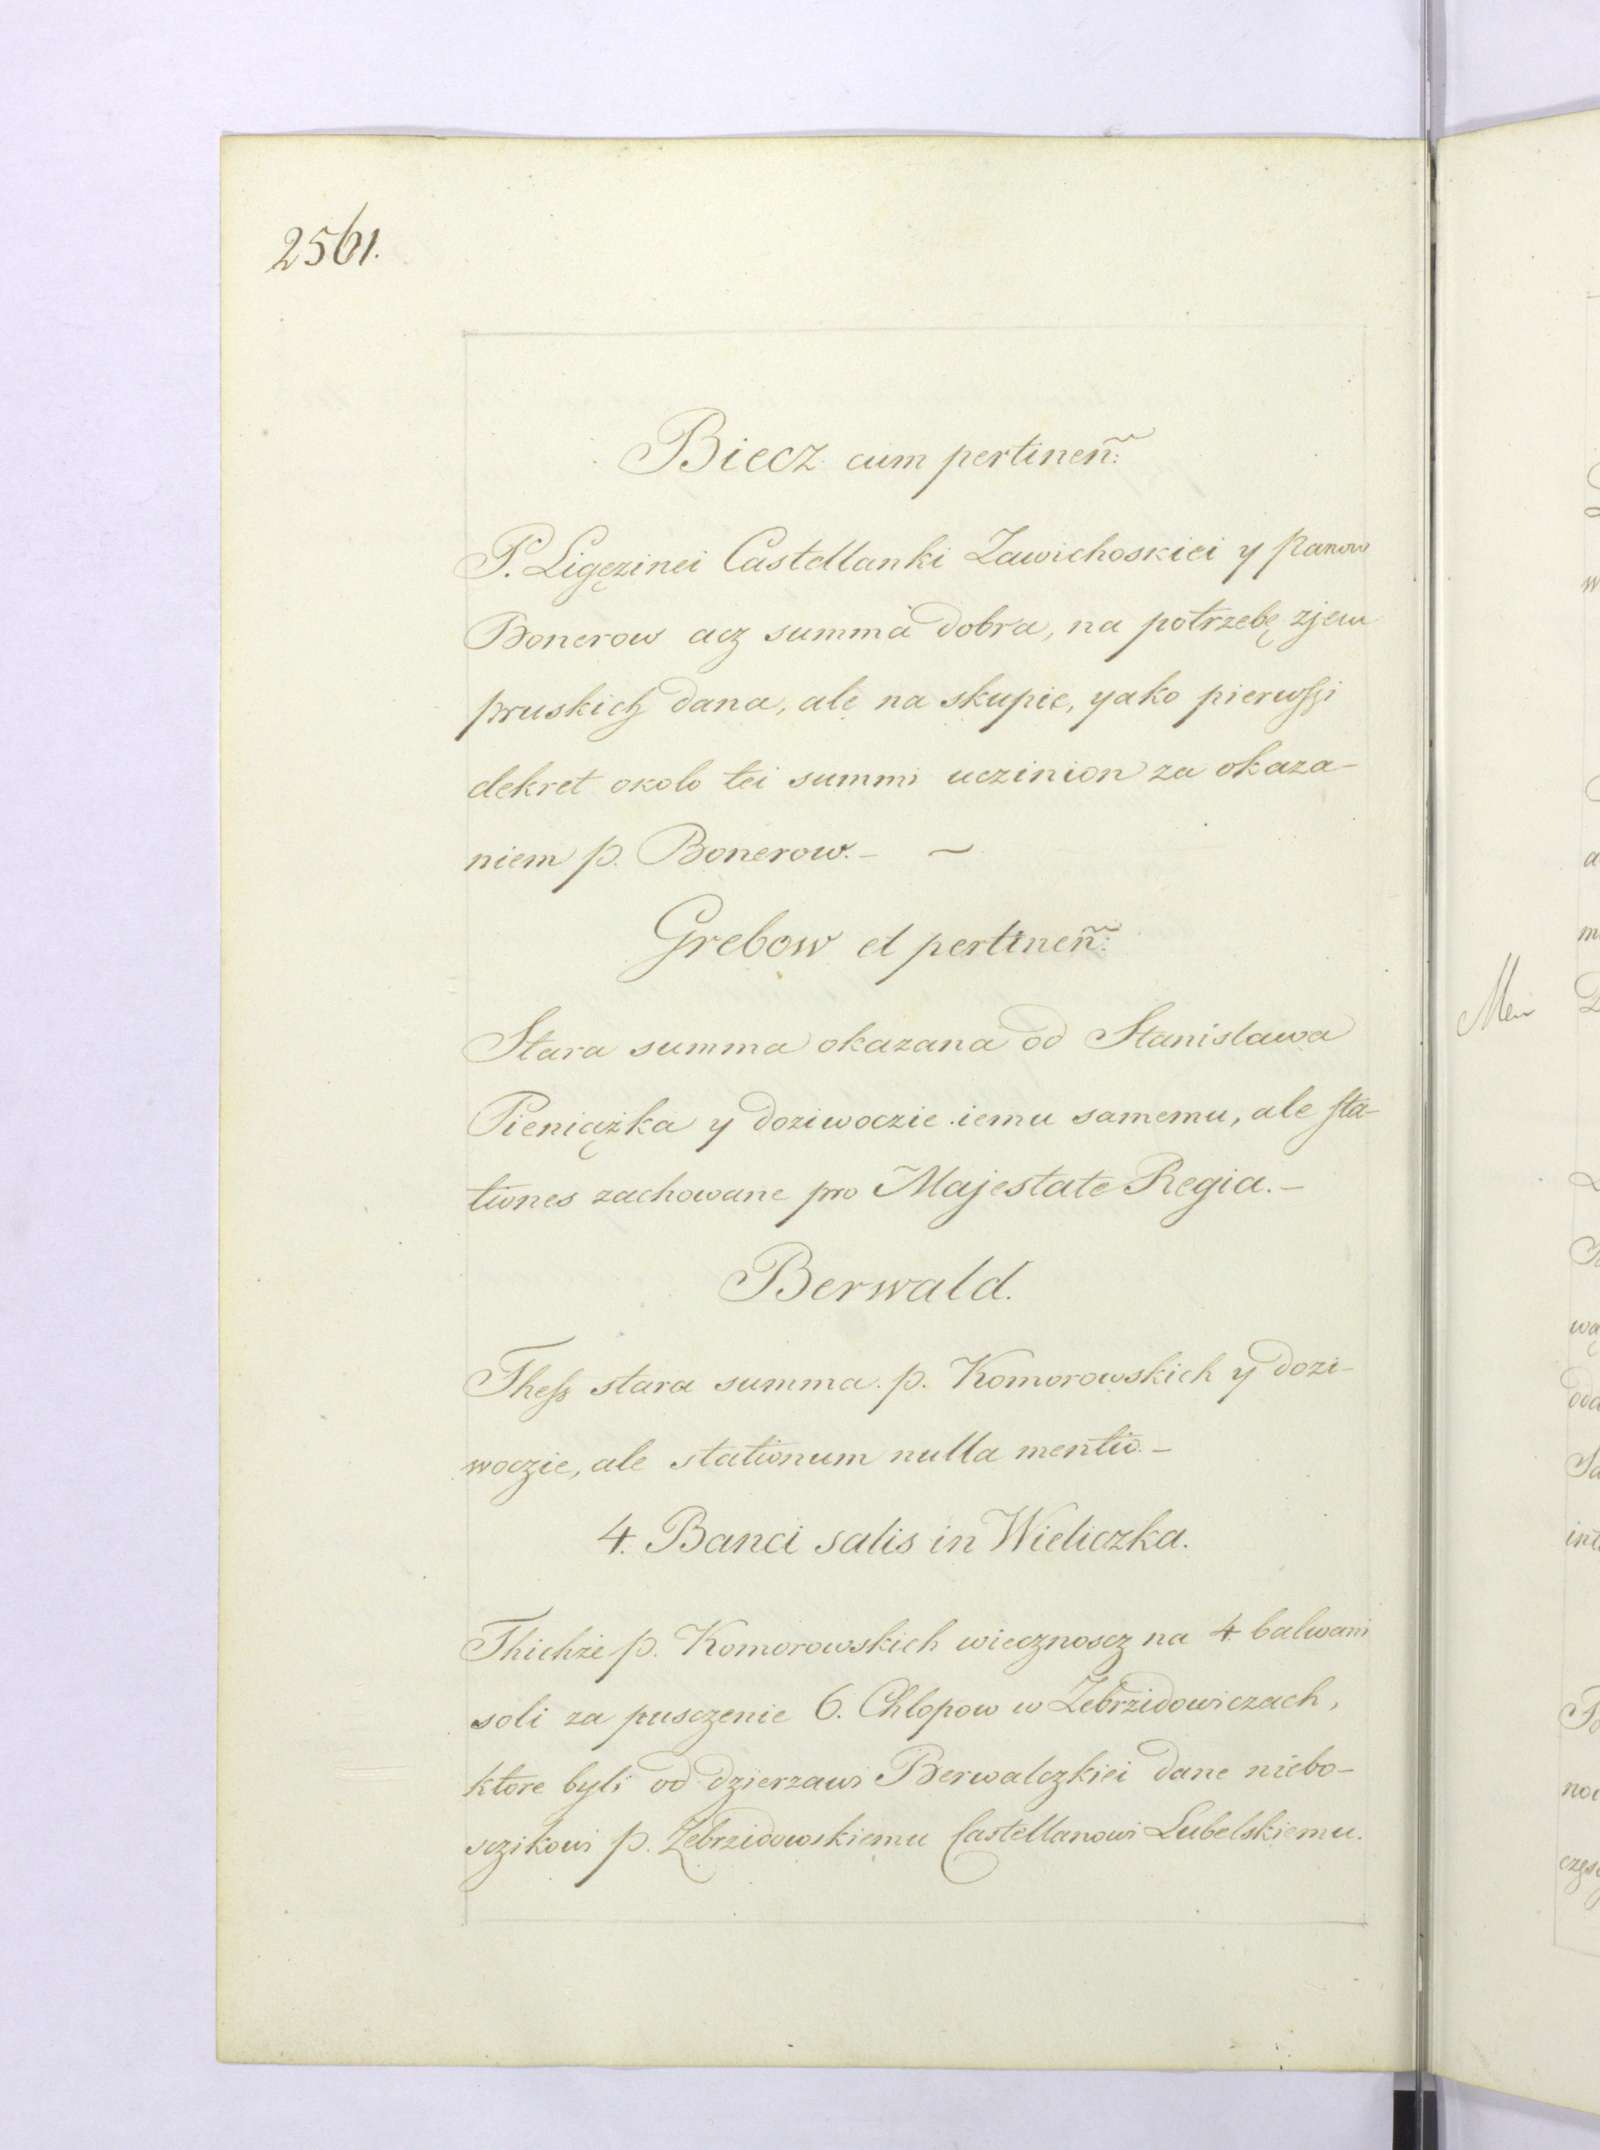 2561.
Biecz cum pertineñ:
P. Ligęzinei Castellanki Zawichoskiei y Panow
Bonerow acz summa dobra, na potrzebę zjem
pruskich dana, ale na skupie, yako pierwszi
dekret okolo tei summi uczinion za okaza-
niem p. Bonerow. - ~
Grebow et pertineñ:
Stara summa okazana od Stanislawa
Pieniązka y doziwoczie iemu samemu, ale sta-
tiones zachowane pro Majestate Regia. -
Berwald.
Thesz stara summa p. Komorowskich y dozi-
woczie, ale stationum nulla mentio. -
4. Banci salis in Wieliczka.
Thichże p. Komorowskich wiecznoscz na 4 balwani
soli za pusczenie 6. Chlopow w Zebrzidowiczach,
ktore byli od dzierzawi Berwalczkiei dane niebo-
sczikowi p. Zebrzidowskiemu Castellanowi Lubelskiemu.